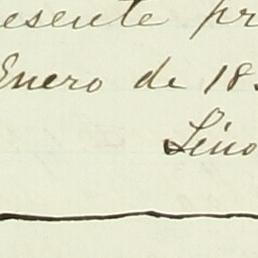 resente pr
Enero de 18
Lino